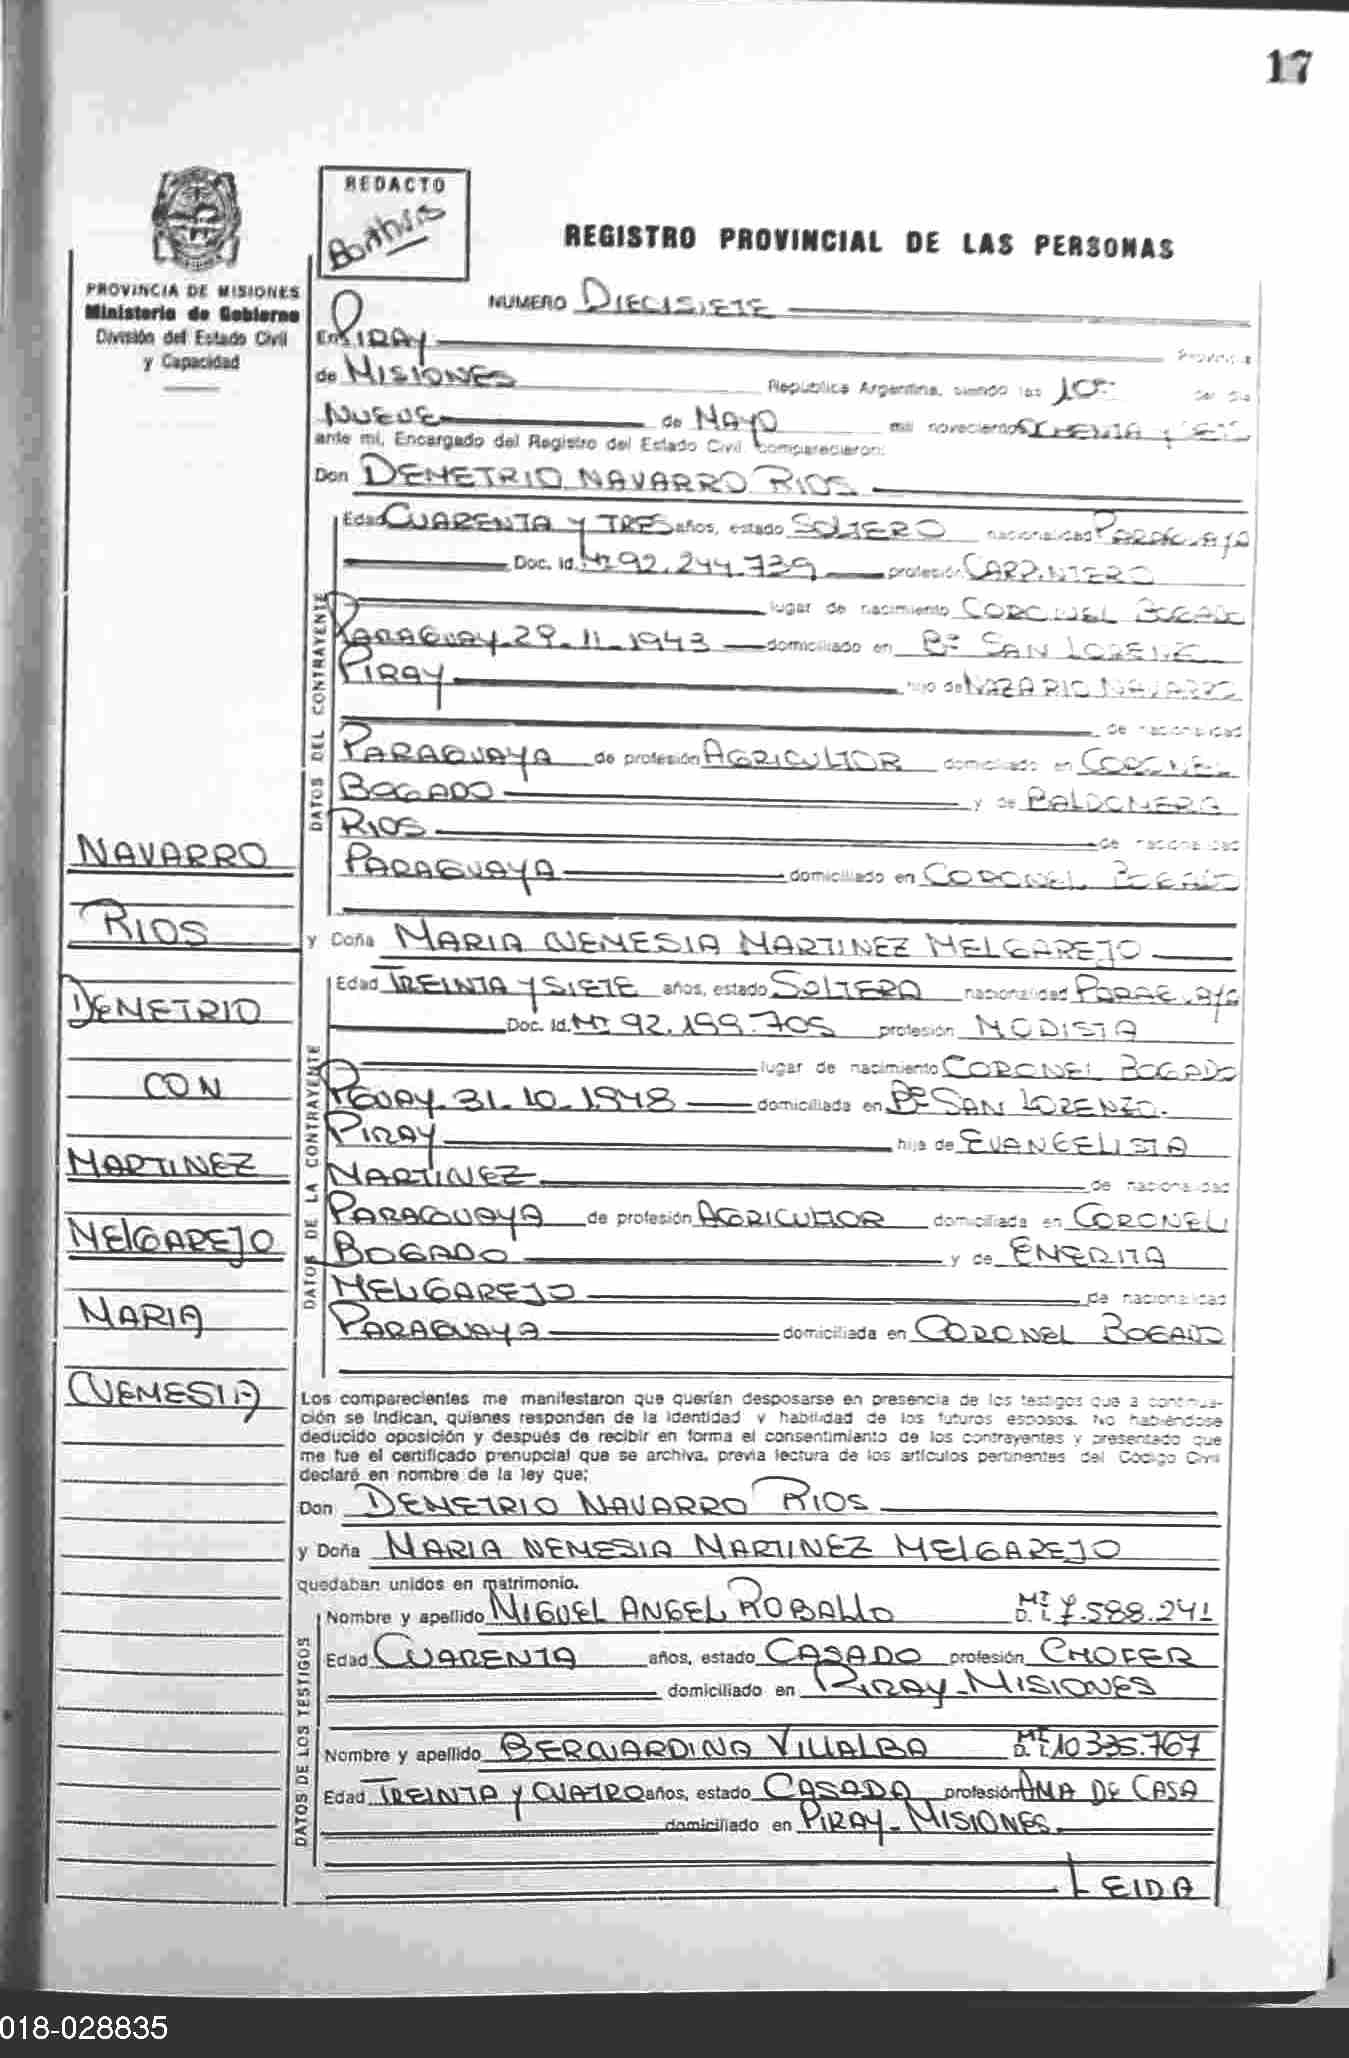 17
REDACTO
PROVINCIA DE MISIONES
Ministerio de Gobierno
División del Estado Civil
y Capacidad
REGISTRO PROVINCIAL DE LAS PERSONAS
NUMERO DIECISIETE
En PIRAY Provincia
de MISIONES República Argentina, siendo las 10 del día
NUEVE de MAYO mil novecientos OCHENTA y
ante mi, Encargado del Registro del Estado Civil comparecieron:
Don DEMETRIO NAVARRO RIOS
DATOS DEL CONTRAYENTE
Edad CUARENTA Y TRES años, estado SOLTERO nacionalidad PARAGUAYA
Doc. Id. MI 92.244.739 profesión CARPINTERO
lugar de nacimiento CORONEL BOGADO
PARAGUAY 29-11-1943 domiciliado en Bº SAN LORENZO
PIRAY hijo de NAZARIO NAVARRO
de nacionalidad
PARAGUAYA de profesión AGRICULTOR domiciliado en CORONEL
BOGADO y de BALDOMERA
RIOS de nacionalidad
PARAGUAYA domiciliado en CORONEL BOGADO
NAVARRO
RIOS
DEMETRIO
CON
MARTINEZ
MELGAREJO
MARIA
NEMESIA
y Doña MARIA NEMESIA MARTINEZ MELGAREJO
DATOS DE LA CONTRAYENTE
Edad TREINTA Y SIETE años, estado SOLTERA nacionalidad PARAGUAYA
Doc. Id. MI 92.199.705 profesión MODISTA
lugar de nacimiento CORONEL BOGADO
PGUAY 31-10-1948 domiciliada en Bº SAN LORENZO.
PIRAY hija de EVANGELISTA
MARTINEZ de nacionalidad
PARAGUAYA de profesión AGRICULTOR domiciliada en CORONEL
BOGADO y de EMERITA
MELGAREJO de nacionalidad
PARAGUAYA domiciliada en CORONEL BOGADO
Los comparecientes me manifestaron que querían desposarse en presencia de los testigos que a continua-
ción se indican, quienes responden de la identidad y habilidad de los futuros esposos. No habiéndose
deducido oposición y después de recibir en forma el consentimiento de los contrayentes y presentado que
me fue el certificado prenupcial que se archiva, previa lectura de los artículos pertinentes del Código Civil
declaré en nombre de la ley que;
Don DEMETRIO NAVARRO RIOS
y Doña MARIA NEMESIA MARTINEZ MELGAREJO
quedaban unidos en matrimonio.
DATOS DE LOS TESTIGOS
Nombre y apellido MIGUEL ANGEL ROBALLO MI D. I. 7.588.241
Edad CUARENTA años, estado CASADO profesión CHOFER
domiciliado en PIRAY-MISIONES
Nombre y apellido BERNARDINA VILLALBA MI D. I. 10.335.767
Edad TREINTA Y CUATRO años, estado CASADA profesión AMA DE CASA
domiciliado en PIRAY-MISIONES.
LEIDA
018-028835